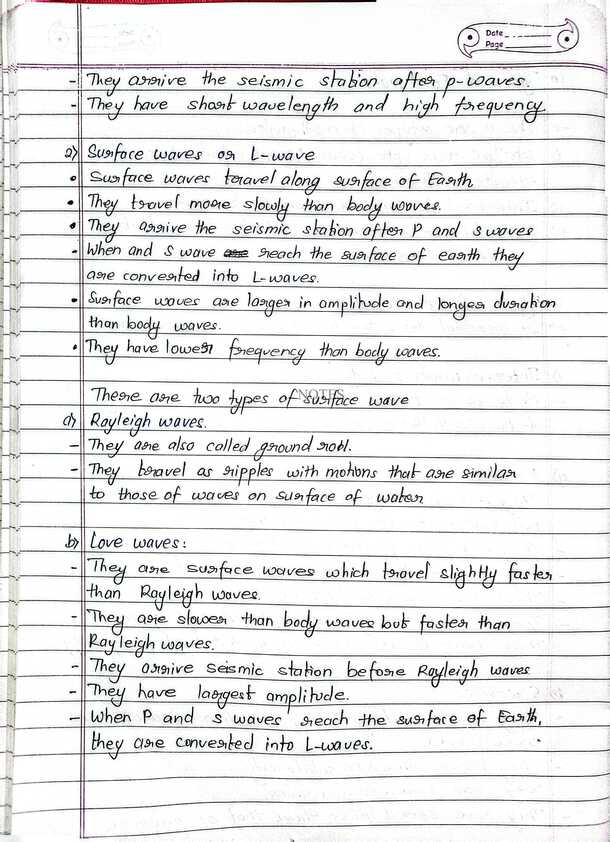 Date
Page
- They arrive the seismic station after p-waves.
- They have short wavelength and high frequency
2) Surface waves or L-wave
• Surface waves travel along surface of Earth
• They travel more slowly than body waves.
• They arrive the seismic station after P and s waves
- When and S wave are reach the surface of earth they
are converted into L-waves.
• Surface waves are larger in amplitude and longer duration
than body waves.
• They have lower frequency than body waves.
There are two types of surface wave
NOTES
a) Rayleigh waves.
- They are also called ground roll.
- They travel as ripples with motions that are similar
to those of waves on surface of water
b) Love waves:
- They are surface waves which travel slightly faster
than Rayleigh waves.
- They are slower than body waves but faster than
Rayleigh waves.
- They arrive seismic station before Rayleigh waves
- They have largest amplitude.
- When P and s waves reach the surface of Earth,
they are converted into L-waves.